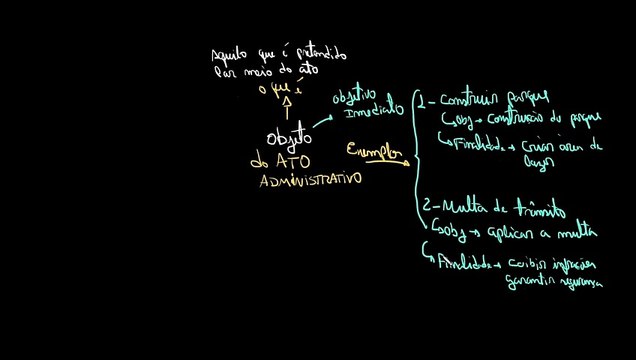 Aquilo que é pretendido
por meio do ato
o que é
objetivo
Imediato
objeto
do ATO
ADMINISTRATIVO
Exemplos
1- Construir parque
obj → construção do parque
Finalidade → criar área de
lazer
2- Multa de trânsito
obj → aplicar a multa
Finalidade → coibir infrações
garantir segurança